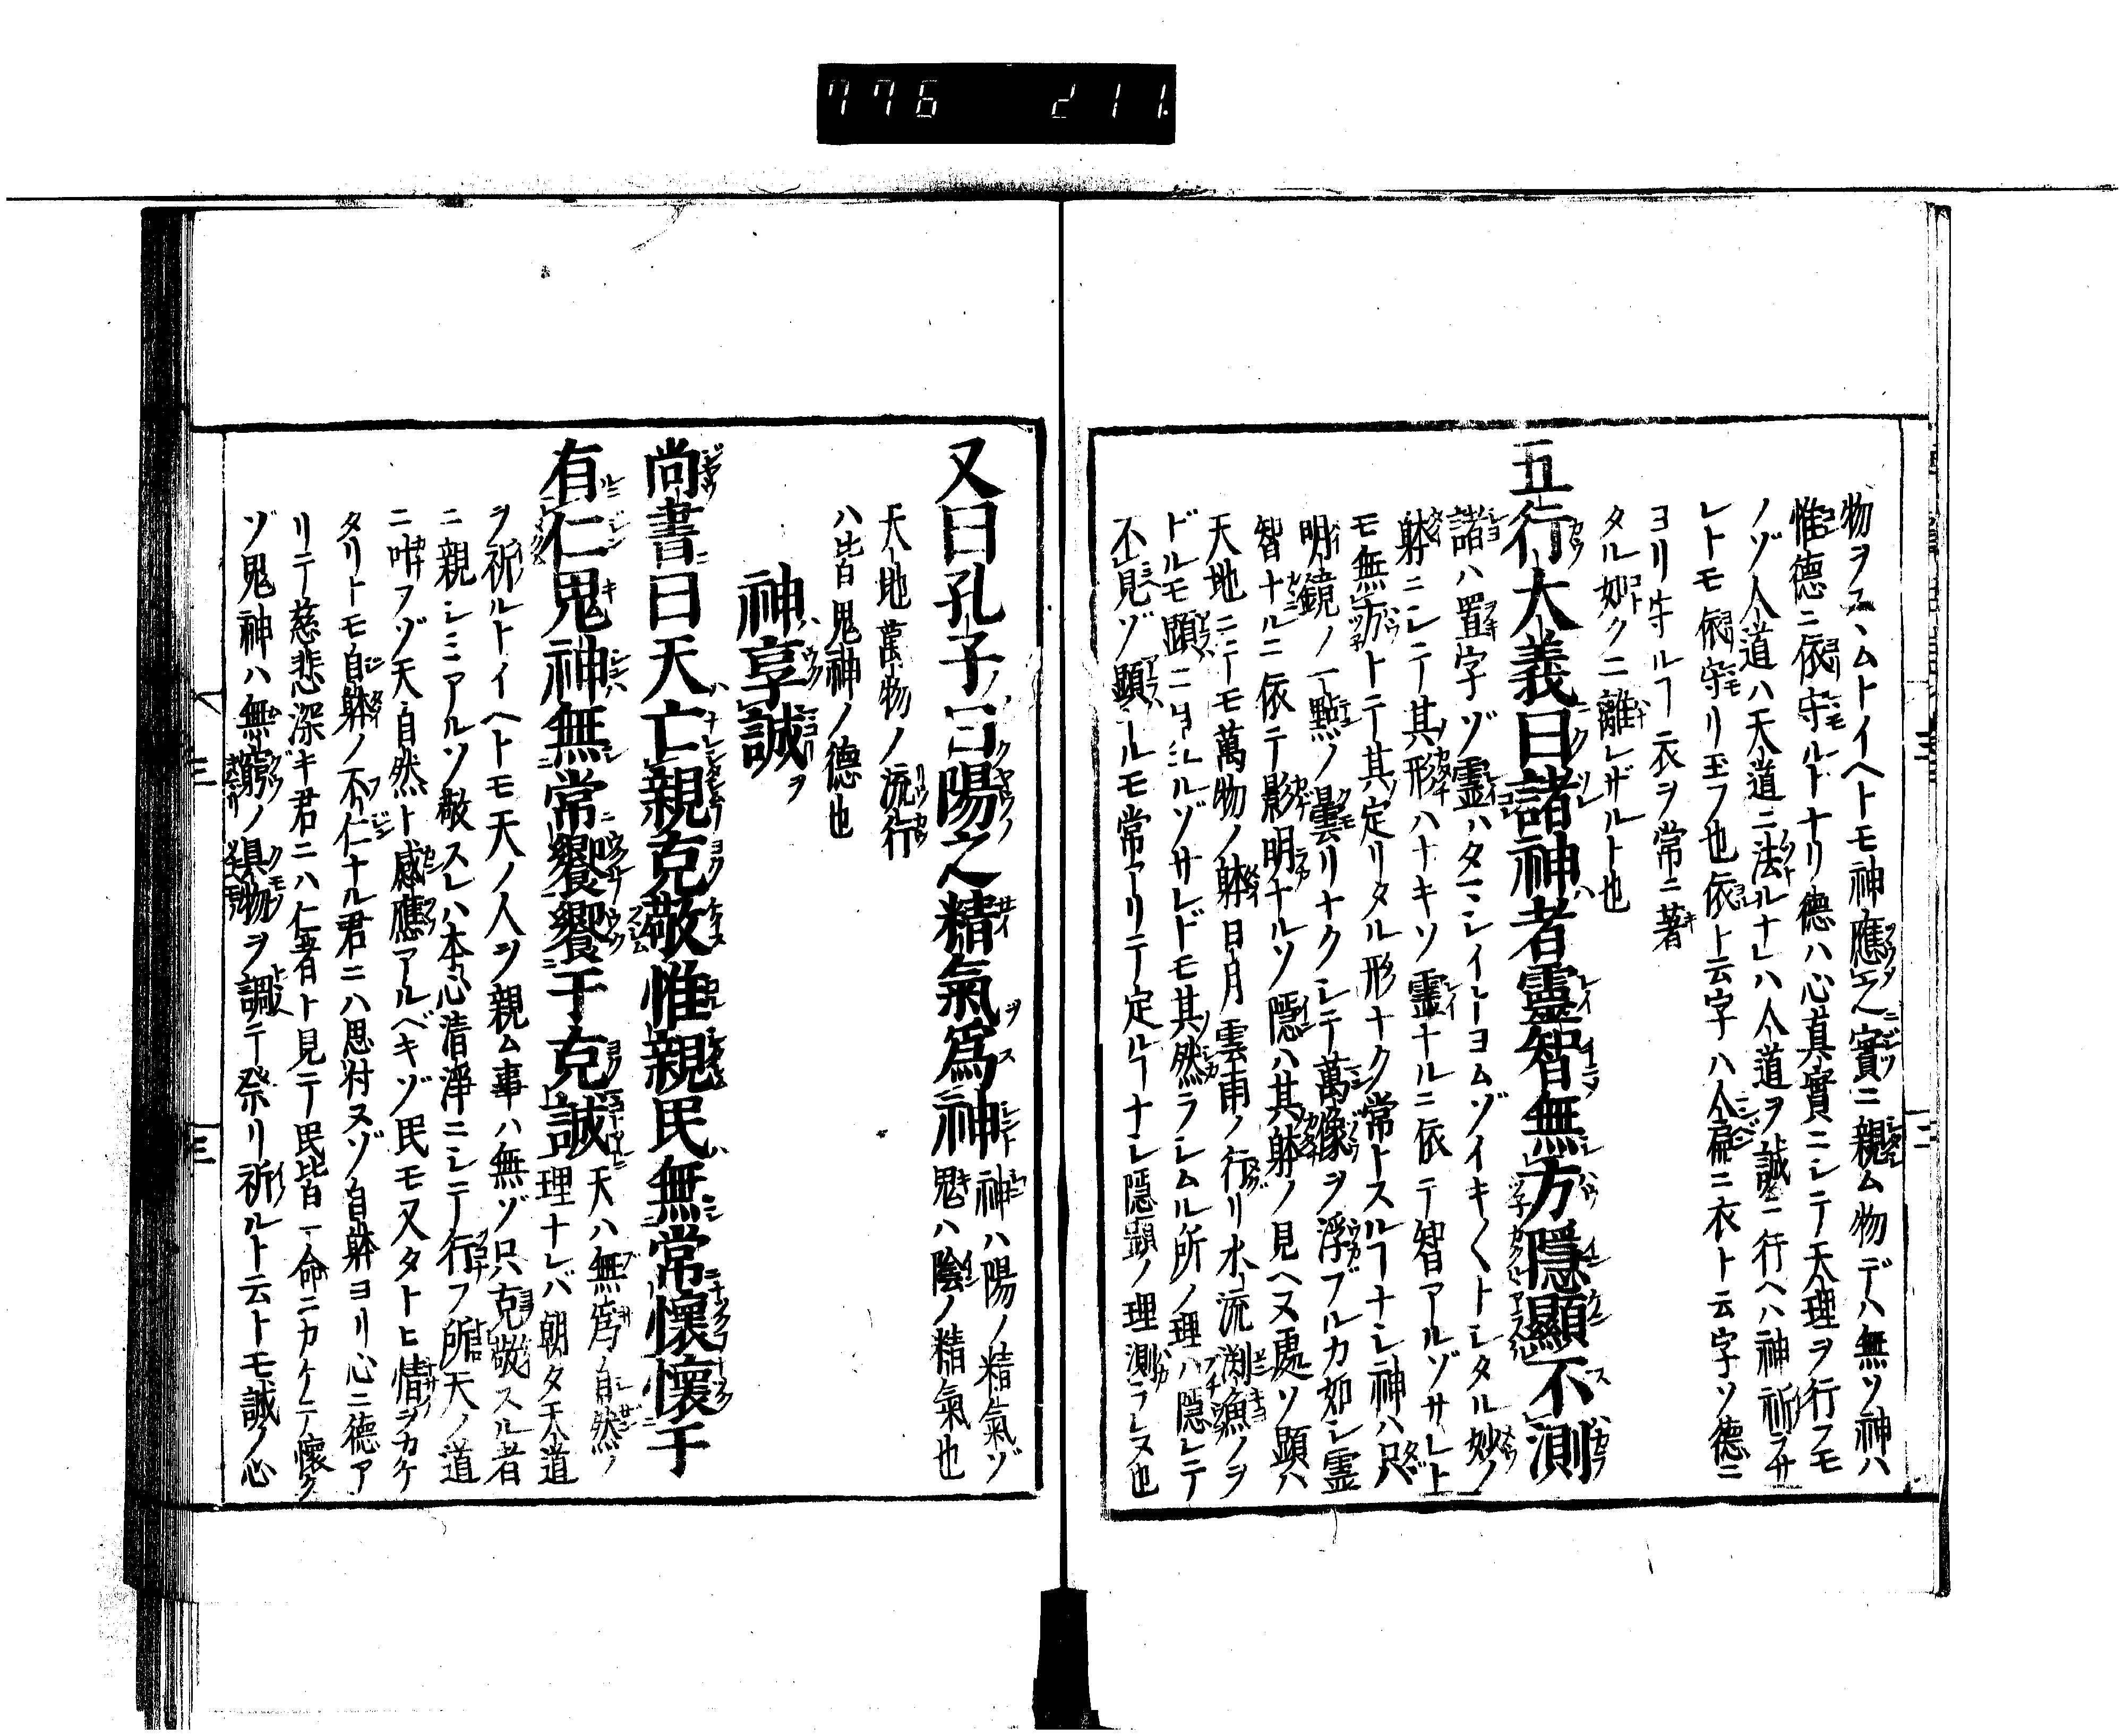 776 211
物ヲスヽムトイヘトモ神應之實ニ親ム物デハ無ソ神ハ
惟德ニ依守ルトナリ德ハ心真實ニシテ天理ヲ行フモ
ノゾ人道ハ天道ニ法ルナレハ人道ヲ誠ニ行ヘハ神祈ラサ
レトモ依守リ玉フ也依ト云字ハ人扁ニ衣ト云字ソ德ニ
ヨリ守ルヿ衣ヲ常ニ著
タル如クニ離レザルト也
五行大義曰諸神者靈智無方隱顯不測
諸ハ置字ゾ霊ハタマシイトヨムゾイキ〱トシタル妙ノ
躰ニシテ其形ハナキソ霊ナルニ依テ智アルゾサレト
モ無方トテ其定リタル形ナク常トスルヿナシ神ハ只
明鏡ノ一點ノ曇リナクシテ萬像ヲ浮ブルカ如シ霊
智ナルニ依テ影明ナルソ隠ハ其躰ノ見ヘヌ處ソ顕ハ
天地ニテモ萬物ノ躰日月雲雨ノ行リ水流渕漁ノヲ
ドルモ顕ニヨルゾサレドモ其然ラシムル所ノ理ハ隠レテ
不見ゾ顕ルモ常アリテ定ルヿナシ隠顕ノ理測ラレヌ也
又曰孔子曰陽之精氣爲神 神ハ陽ノ精氣ゾ
鬼ハ陰ノ精氣也
天地萬物ノ流行
ハ皆鬼神ノ德也
神享誠
尚書曰天亡親克敬惟親民無常懷懷于
有仁鬼神無常饗饗于克誠 天ハ無爲自然ノ
理ナレバ朝タ天道
ヲ祈ルトイヘトモ天ノ人ヲ親ム事ハ無ゾ只克敬スル者
ニ親シミアルソ敬スレハ本心清淨ニシテ行フ所天ノ道
ニ叶フゾ天自然ト感應アルベキゾ民モ又タトヒ情ヲカケ
タリトモ自躰ノ不仁ナル君ニハ思付ヌゾ自躰ヨリ心ニ德ア
リテ慈悲深キ君ニハ仁者ト見テ民皆一命ニカケテ懷ク
ゾ鬼神ハ無窮ノ具物ヲ調テ祭リ祈ルト云トモ誠ノ心